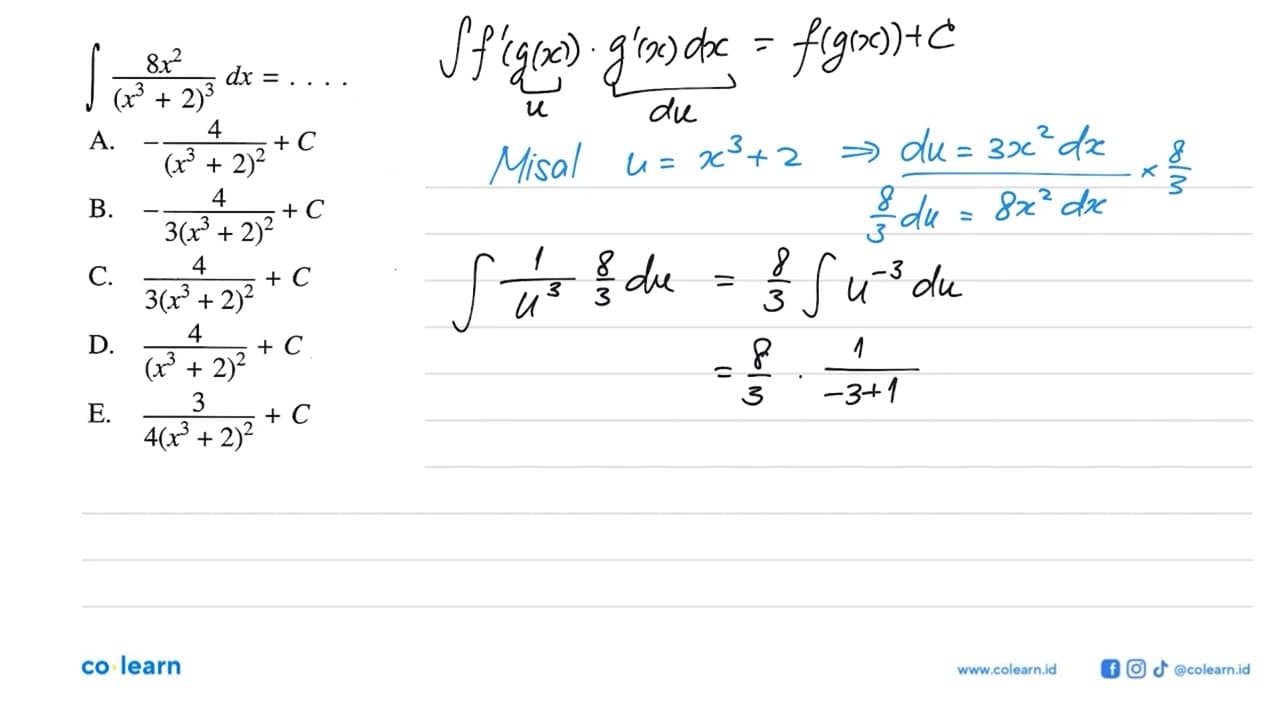 ∫ 8x²/(x³ + 2)³ dx = . . . .
A. −4/(x³ + 2)² + C
B. −4/3(x³ + 2)² + C
C. 4/3(x³ + 2)² + C
D. 4/(x³ + 2)² + C
E. 3/4(x³ + 2)² + C
∫f'(g(x)) · g'(x) dx = f(g(x)) + C
u du
Misal u = x³ + 2 ⇒ du = 3x² dx × 8/3
8/3 du = 8x² dx
∫ 1/u³ 8/3 du = 8/3 ∫ u⁻³ du
= 8/3 · 1/−3+1
co learn
www.colearn.id @colearn.id